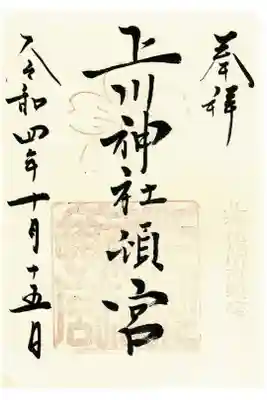 奉拝
上川神社頓宮
令和四年十月十五日